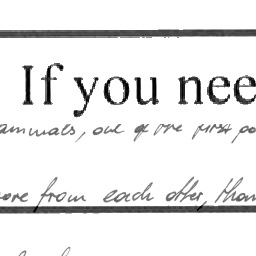 If you nee
ammals, one of the first po
ore from each other, than